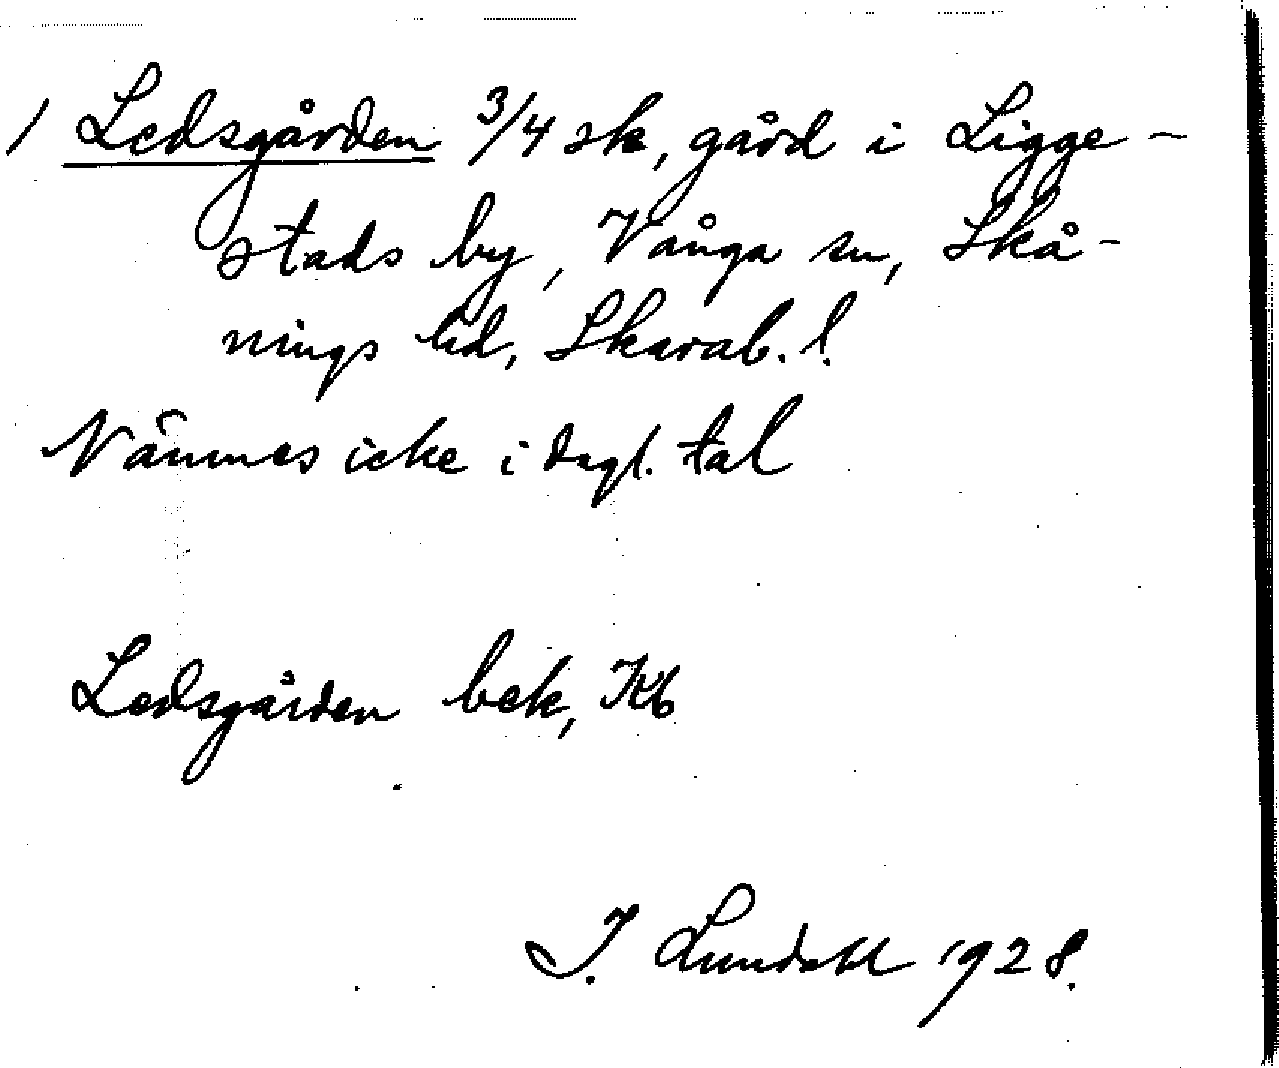 / Ledsgården 3/4 sk, gård i Ligge-
stads by, Vånga sn, Skå-
nings hd, Skarab. l.
Nämnes icke i dagl. tal
Ledsgården bek, Kb
I. Lundahl 1928.